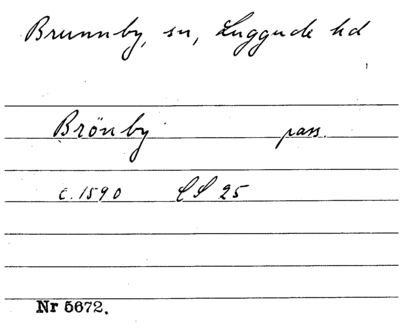 Brunnby, sn, Luggude hd
Brönby pass.
c. 1590 LL 25
Nr 5672.